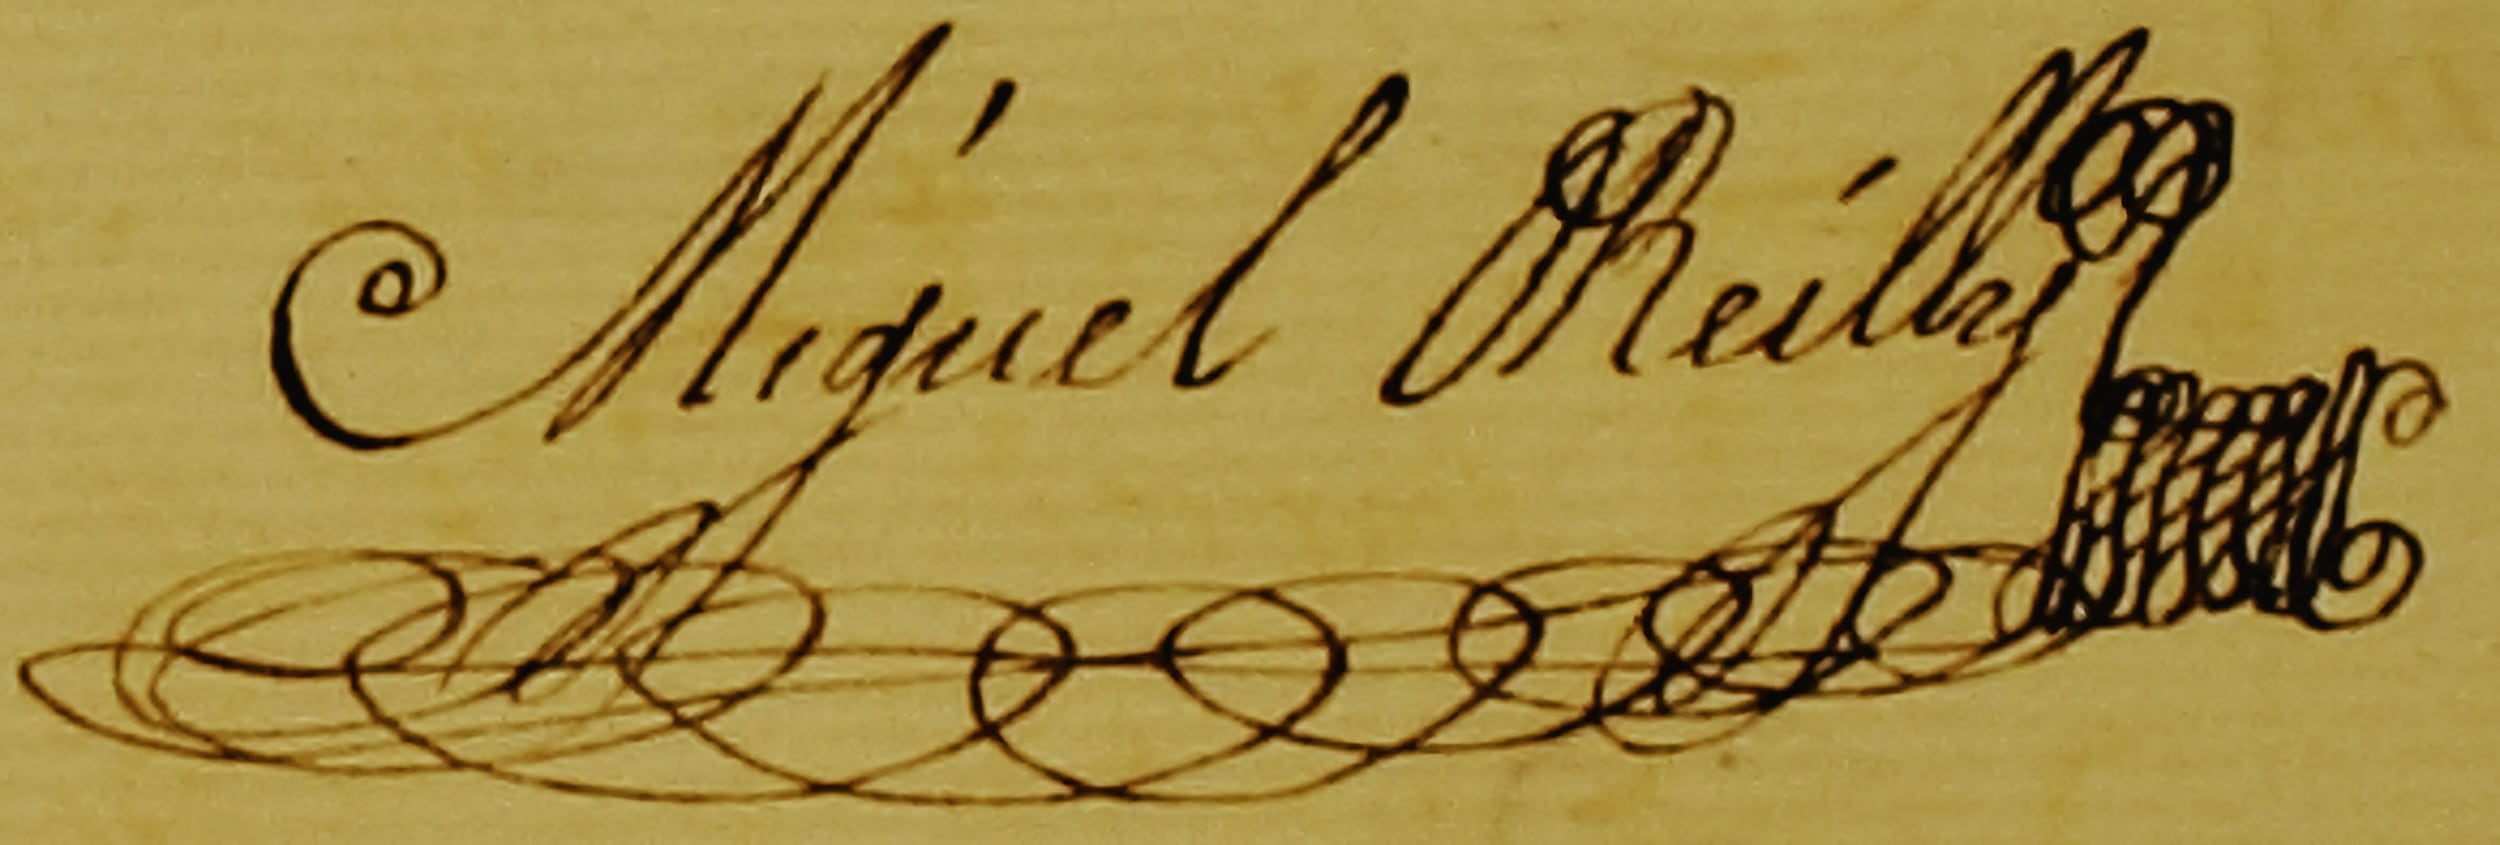 Miguel OReilly